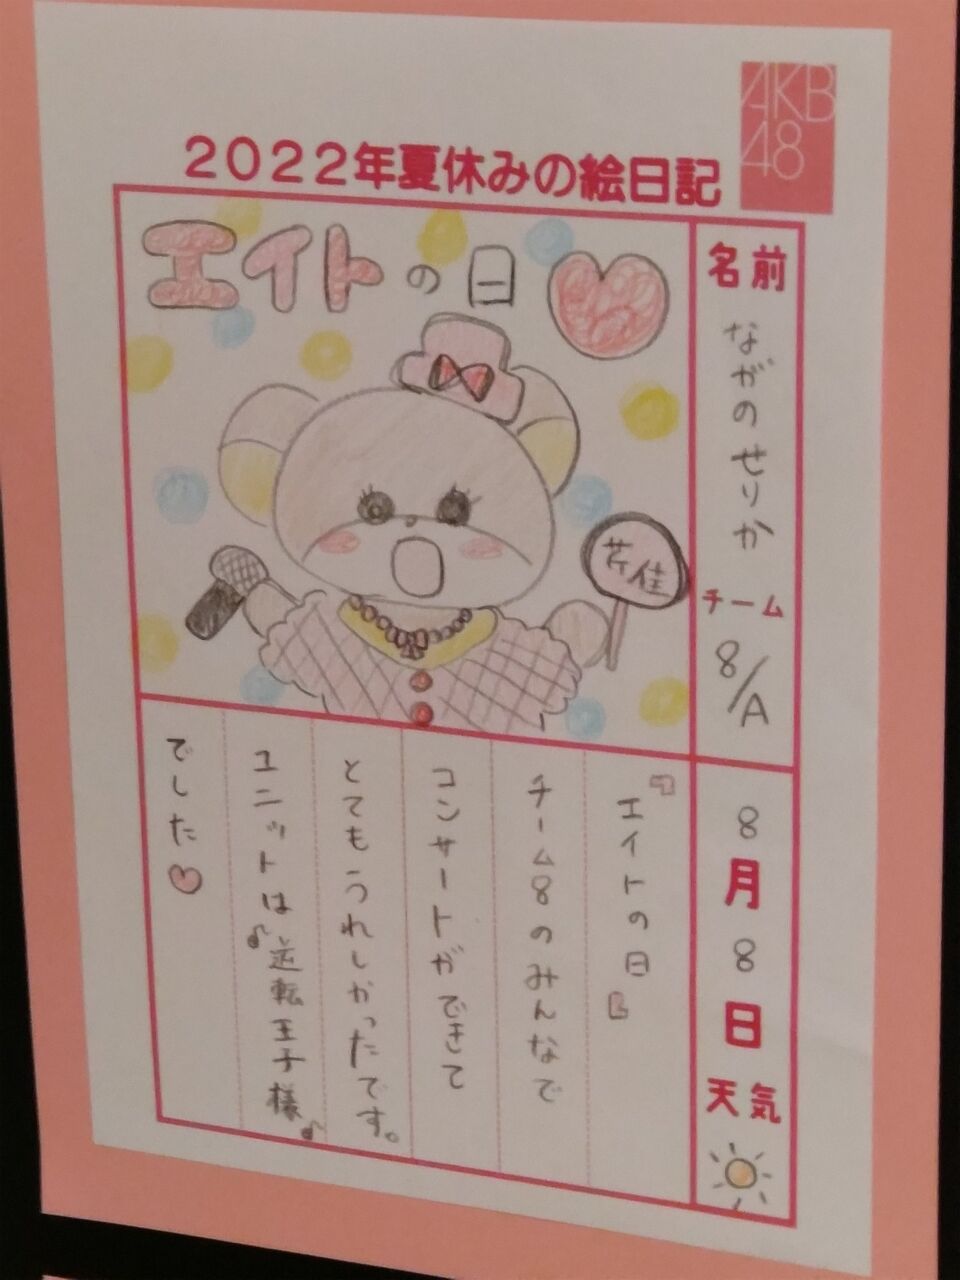 AKB
48
2022年夏休みの絵日記
エイトの日
芹佳
名前
ながのせりか
チーム
8/A
8月8日
天気
『エイトの日』
チーム8のみんなで
コンサートができて
とてもうれしかったです。
ユニットは♪逆転王子様♪
でした♡